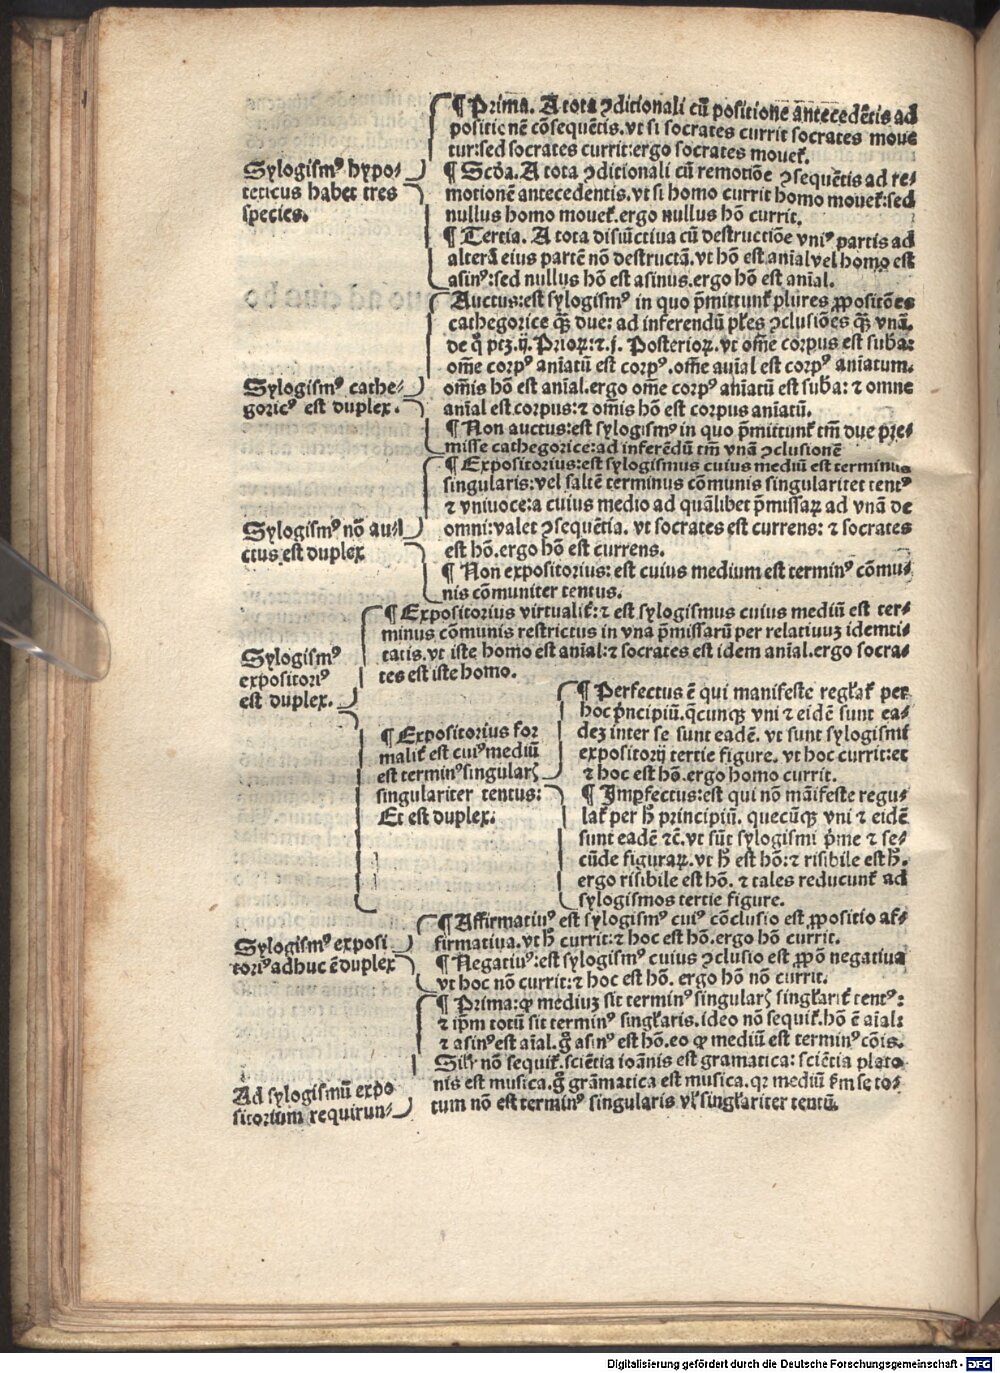 Sylogismꝰ hypo-
teticus habet tres
species.
¶ Prima. A tota ↄditionali cū positione āntecedētis ad
positionē cōsequētis. vt si socrates currit socrates moue
tur: sed socrates currit: ergo socrates mouet᷑.
¶ Scḋa. A tota ↄditionali cū remotiōe ↄsequētis ad re-
motionē antecedentis. vt si homo currit homo mouet᷑: sed
nullus homo mouet᷑. ergo nullus hō currit.
¶ Tertia. A tota disiūctiua cū destructiōe vniꝰ partis ad
alterā eius partē nō destructā. vt hō est aīal vel homo est
asinꝰ: sed nullus hō est asinus. ergo hō est anīal.
Sylogismꝰ cathe-
goricꝰ est duplex.
Auctus: est sylogismꝰ in quo p̄mittunt᷑ plures ꝓpositōes
cathegorice qȝ due: ad inferendū pl̄es ↄclusiōes qȝ vnā.
de q̊ ptȝ. ij. Prioꝝ: ⁊. j. Posterioꝝ. vt om̄e corpus est sub̄a:
om̄e corpꝰ anīatū est corpꝰ. om̄e anīal est corpꝰ anīatum.
om̄is hō est anīal. ergo om̄e corpꝰ anīatū est sub̄a: ⁊ omne
anīal est corpus: ⁊ om̄is hō est corpus anīatū.
¶ Non auctus: est sylogismꝰ in quo p̄mittunt᷑ tm̄ due pre-
misse cathegorice: ad inferēdū tm̄ vnā ↄclusionē
Sylogismꝰ nō au-
ctus est duplex
¶ Expositorius: est sylogismus cuius mediū est terminus
singularis: vel saltē terminus cōmunis singulariter tentꝰ
⁊ vniuoce: a cuius medio ad quālibet p̄missaꝝ ad vnā de
omni: valet ↄsequētia. vt socrates est currens: ⁊ socrates
est hō. ergo hō est currens.
¶ Non expositorius: est cuius medium est terminꝰ cōmu-
nis cōmuniter tentus.
Sylogismꝰ
expositoriꝰ
est duplex.
¶ Expositorius virtualit᷑: ⁊ est sylogismus cuius mediū est ter-
minus cōmunis restrictus in vna p̄missarū per relatiuuȝ idemti-
tatis. vt iste homo est anīal: ⁊ socrates est idem anīal. ergo socra-
tes est iste homo.
¶ Expositorius for
malit᷑ est cuiꝰ mediū
est terminꝰ singularꝭ
singulariter tentus:
Et est duplex:
¶ Perfectus ē qui manifeste regl̄at᷑ per
hoc pͥncipiū. q̄cunqȝ vni ⁊ eidē sunt ea-
deȝ inter se sunt eadē. vt sunt sylogismi
expositorij tertie figure. vt hoc currit: et
⁊ hoc est hō. ergo homo currit.
¶ Imꝑfectus: est qui nō māifeste regu-
lat᷑ per h̄ principiū. quecūqȝ vni ⁊ eidē
sunt eadē ⁊c̄. vt sūt sylogismi pͥme ⁊ se-
cūde figuraꝝ. vt h̄ est hō: ⁊ risibile est h̄.
ergo risibile est hō. ⁊ tales reducunt᷑ ad
sylogismos tertie figure.
Sylogismꝰ exposi
toriꝰ adhuc ē duplex
¶ Affirmatiuꝰ est sylogismꝰ cuiꝰ cōclusio est ꝓpositio af-
firmatiua. vt h̄ currit: ⁊ hoc est hō. ergo hō currit.
¶ Negatiuꝰ: est sylogismꝰ cuius ↄclusio est ꝓpō negatiua
vt hoc nō currit: ⁊ hoc est hō. ergo hō nō currit.
Ad sylogismū expo
sitorium requirun-
¶ Prima: ꝙ mediuȝ sit terminꝰ singularꝭ singl̄arit᷑ tentꝰ:
⁊ ip̄m totū sit terminꝰ singl̄aris. ideo nō sequit᷑. hō ē aīal:
⁊ asinꝰ est aīal. g̊ asinꝰ est hō. eo ꝙ mediū est terminꝰ cōis.
Sil̄r nō sequit᷑. sciētia ioānis est gramatica: sciētia plato
nis est musica. g̊ grāmatica est musica. qꝛ mediū ẜm se to-
tum nō est terminꝰ singularis vl̄ singl̄ariter tentū.
Digitalisierung gefördert durch die Deutsche Forschungsgemeinschaft - DFG